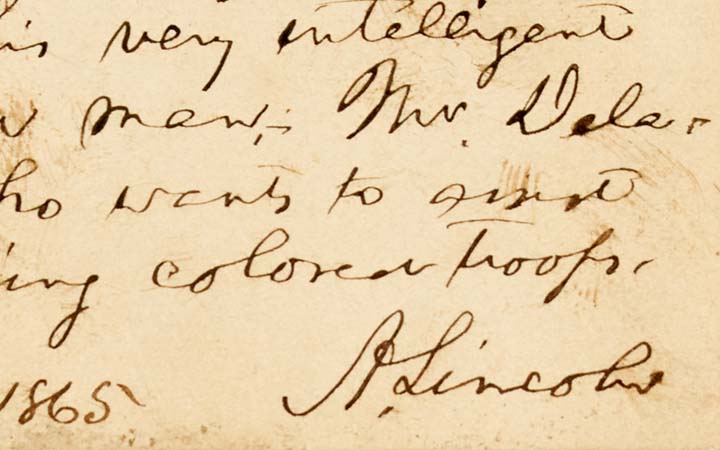 is very intelligent
man,- Mr. Dela-
ho wants to assist
ing colored troops.
A. Lincoln
1865